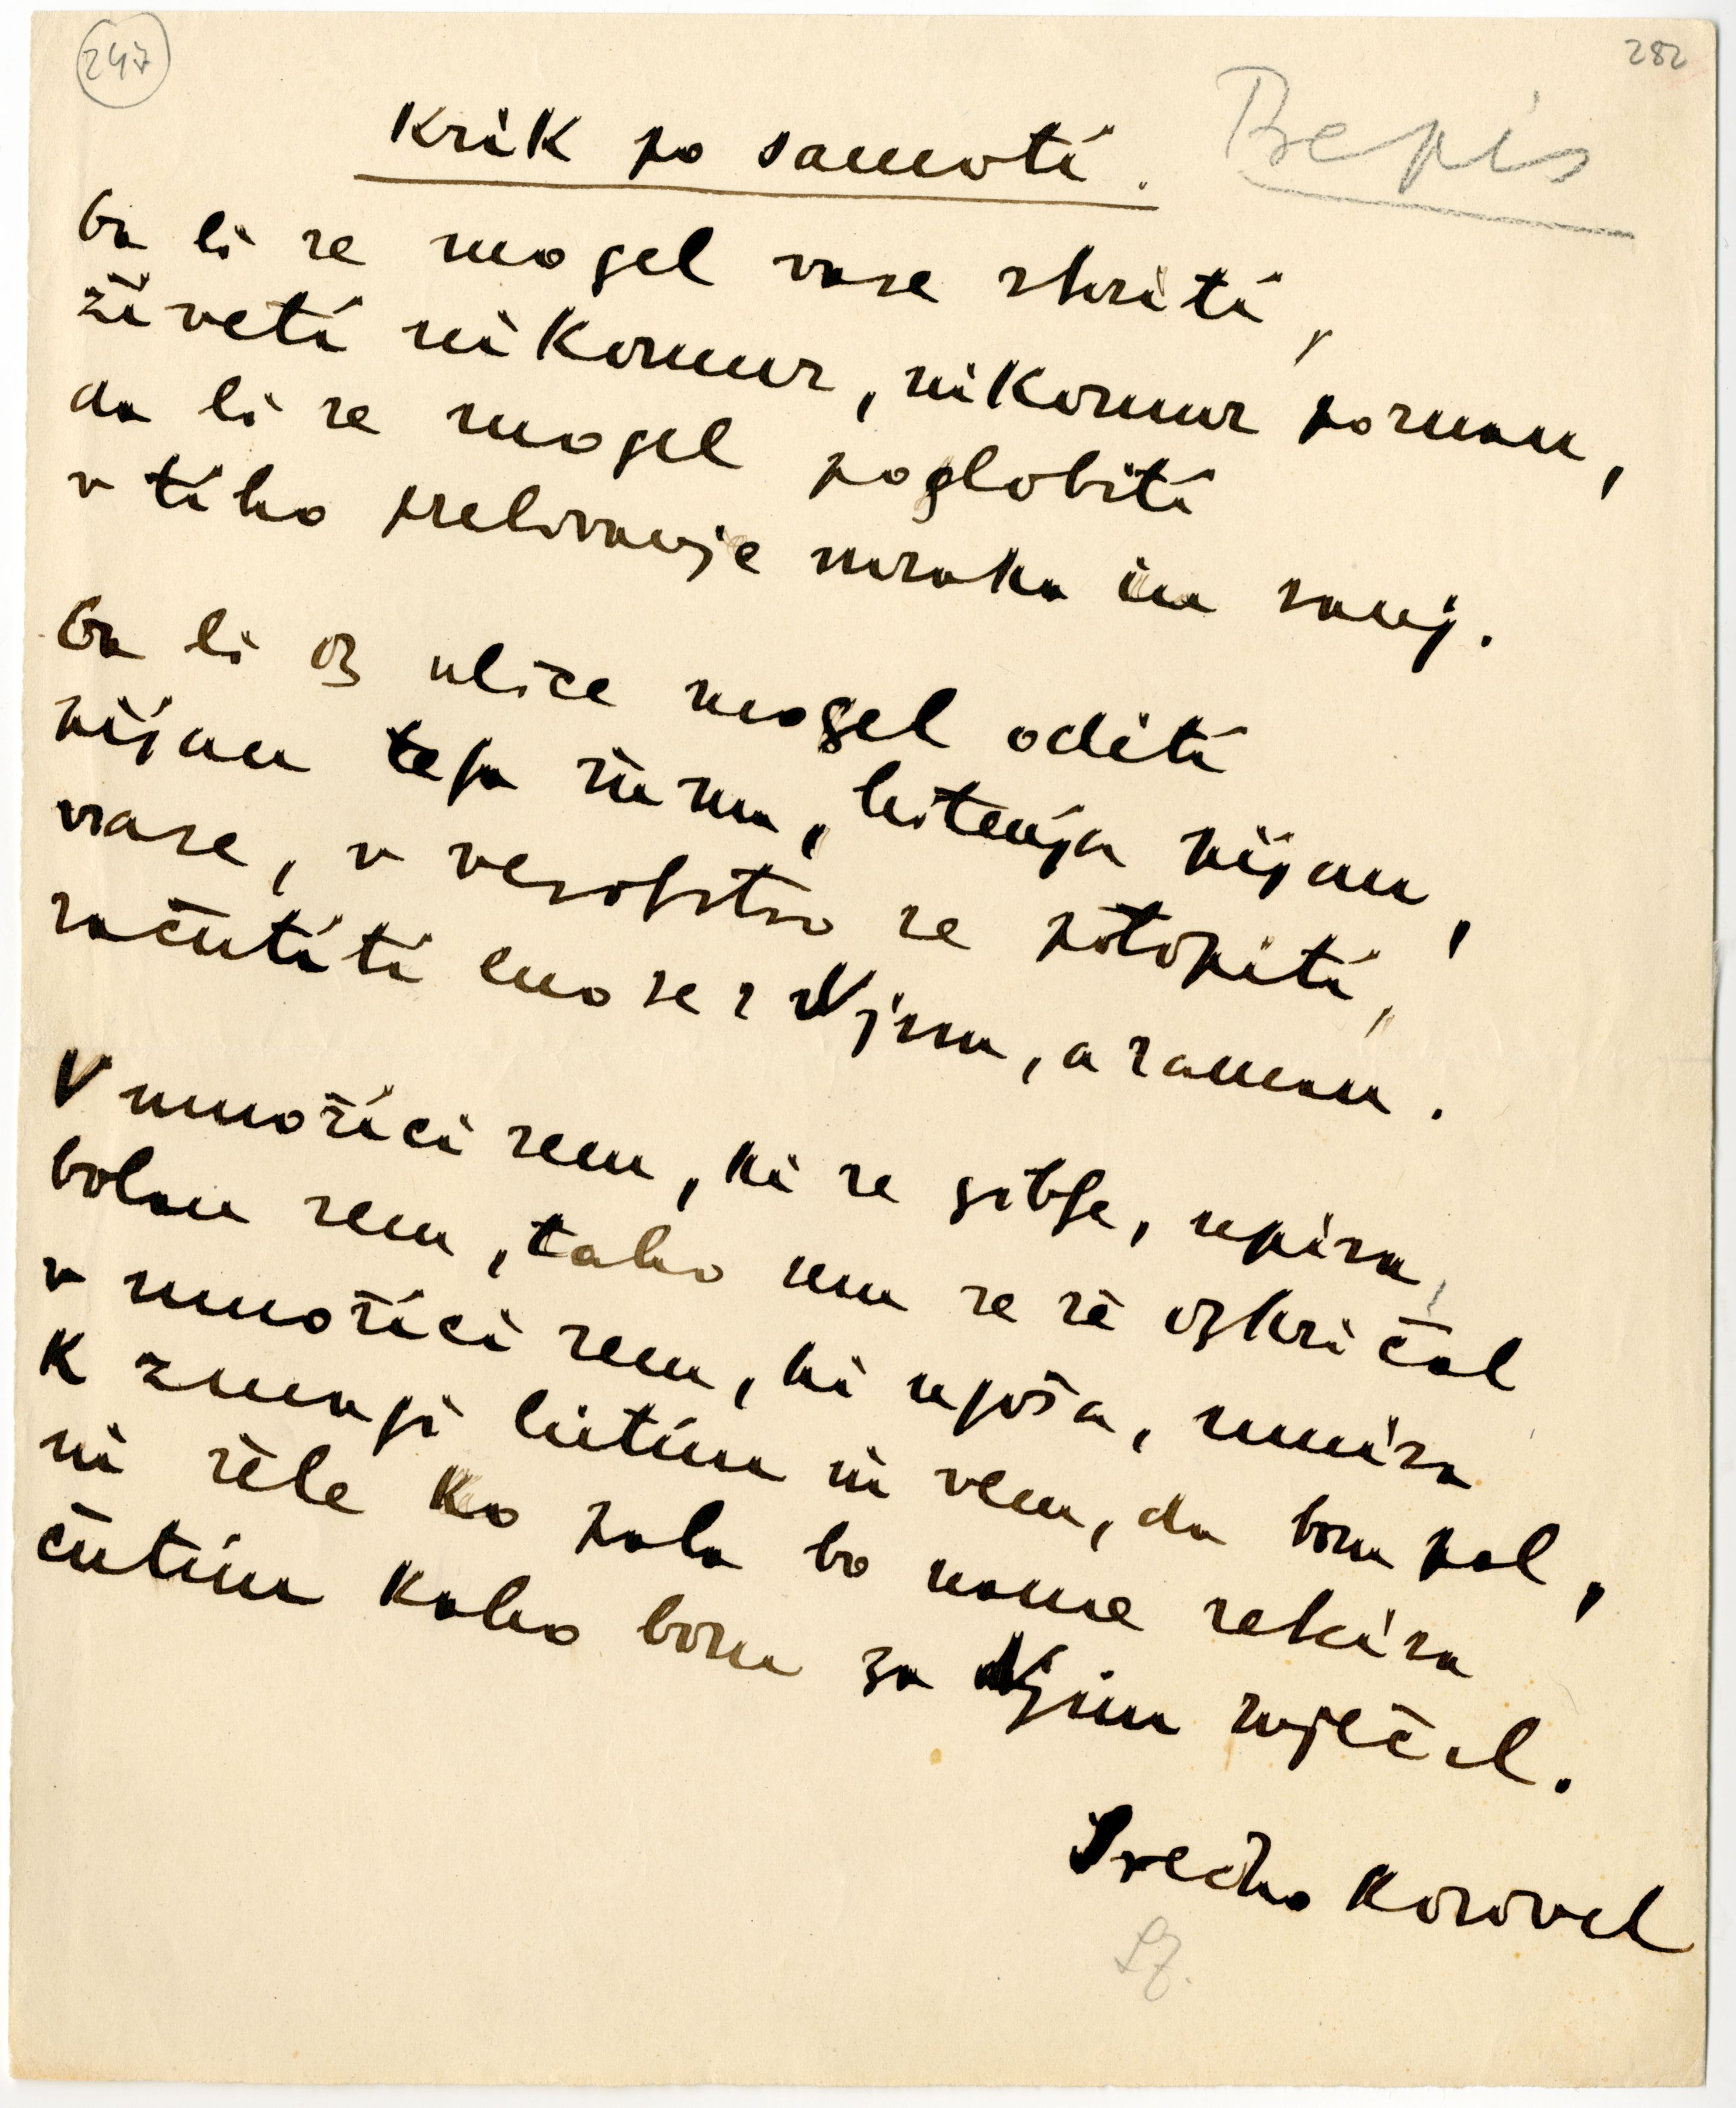 247
282
Krik po samoti.
Prepis
Da bi se mogel vase skriti,
živeti nikomur, nikomur poznan,
da bi se mogel poglobiti
v tiho prelivanje mraka in sanj.
Da bi iz ulice mogel oditi
pijan tega šuma, hitenja pijan,
vase, v vesoljstvo se potopiti,
začutiti eno se z Njim, a zaman.
V množici sem, ki se giblje, upira,
bolan sem, tako sem se že izkričal
v množici sem, ki ugaša, umira
K zmagi hitim in vem, da bom pal,
in šele ko pala bo name sekira
čutim kako bom za Njim zaječal.
Srečko Kosovel